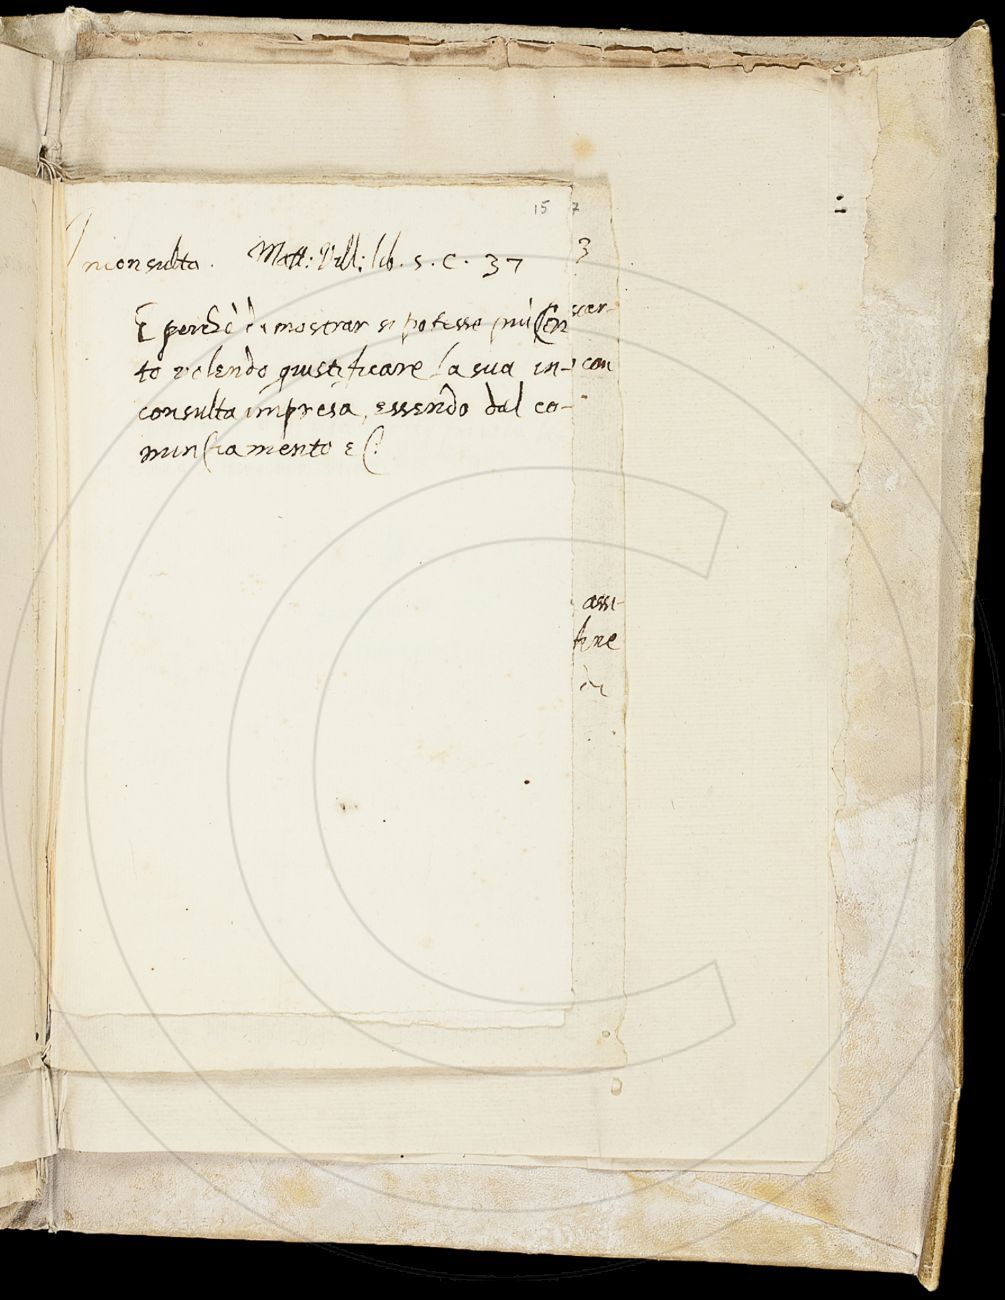 15 7
3
Inconsulta. Matt: Vill: lib. 5. C. 37
E perchè dimostrar si potesse più
to volendo giustificare la sua in-
consulta impresa, essendo dal co-
minciamento
con
assi-